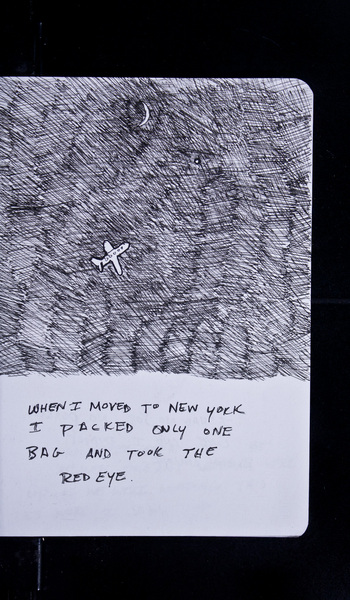 WHEN I MOVED TO NEW YORK
I PACKED ONLY ONE
BAG AND TOOK THE
RED EYE.